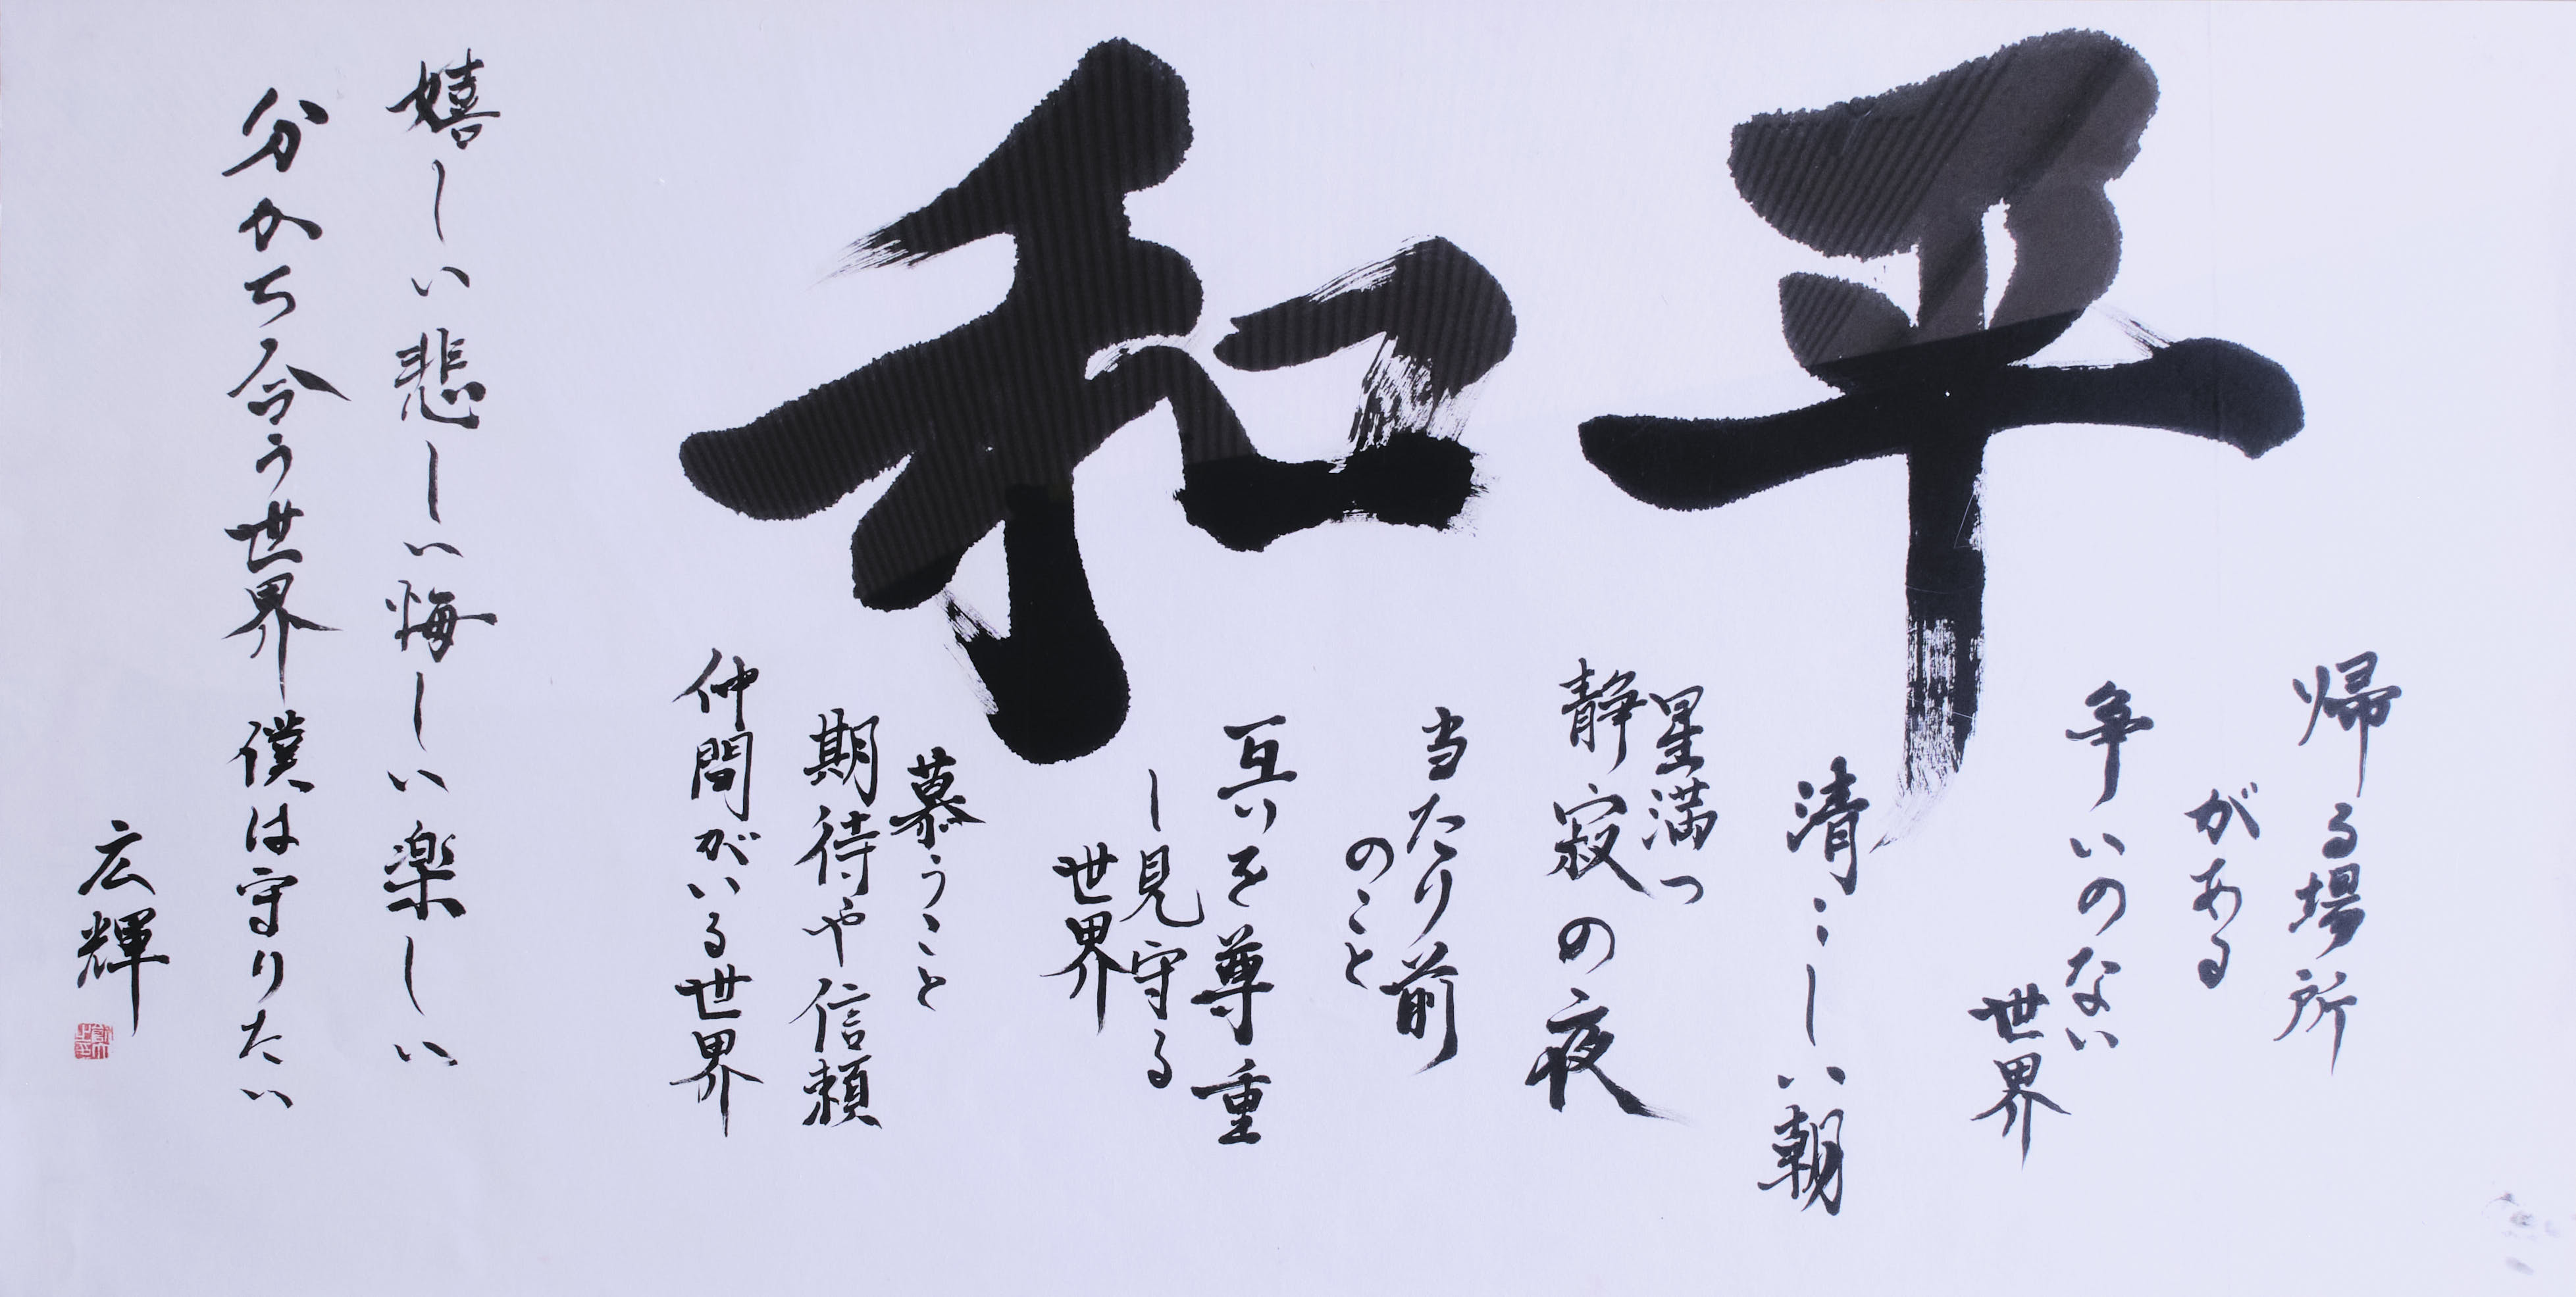 平和
帰る場所
がある
争いのない
世界
清〻しい朝
星満つ
静寂の夜
当たり前
のこと
互いを尊重
し見守る
世界
慕うこと
期待や信頼
仲間がいる世界
嬉しい悲しい悔しい楽しい
分かち合う世界僕は守りたい
広輝